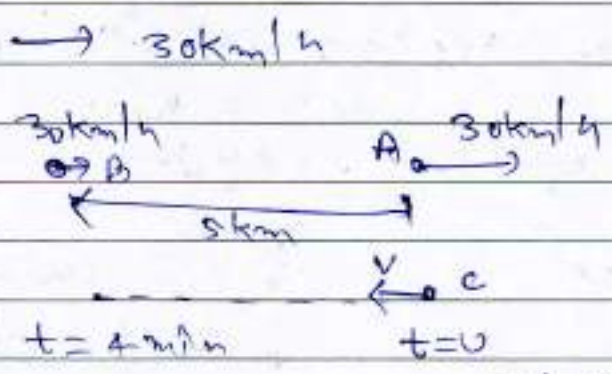 → 30km/h
30km/h A 30km/h
B
5km
V C
t=4min t=0